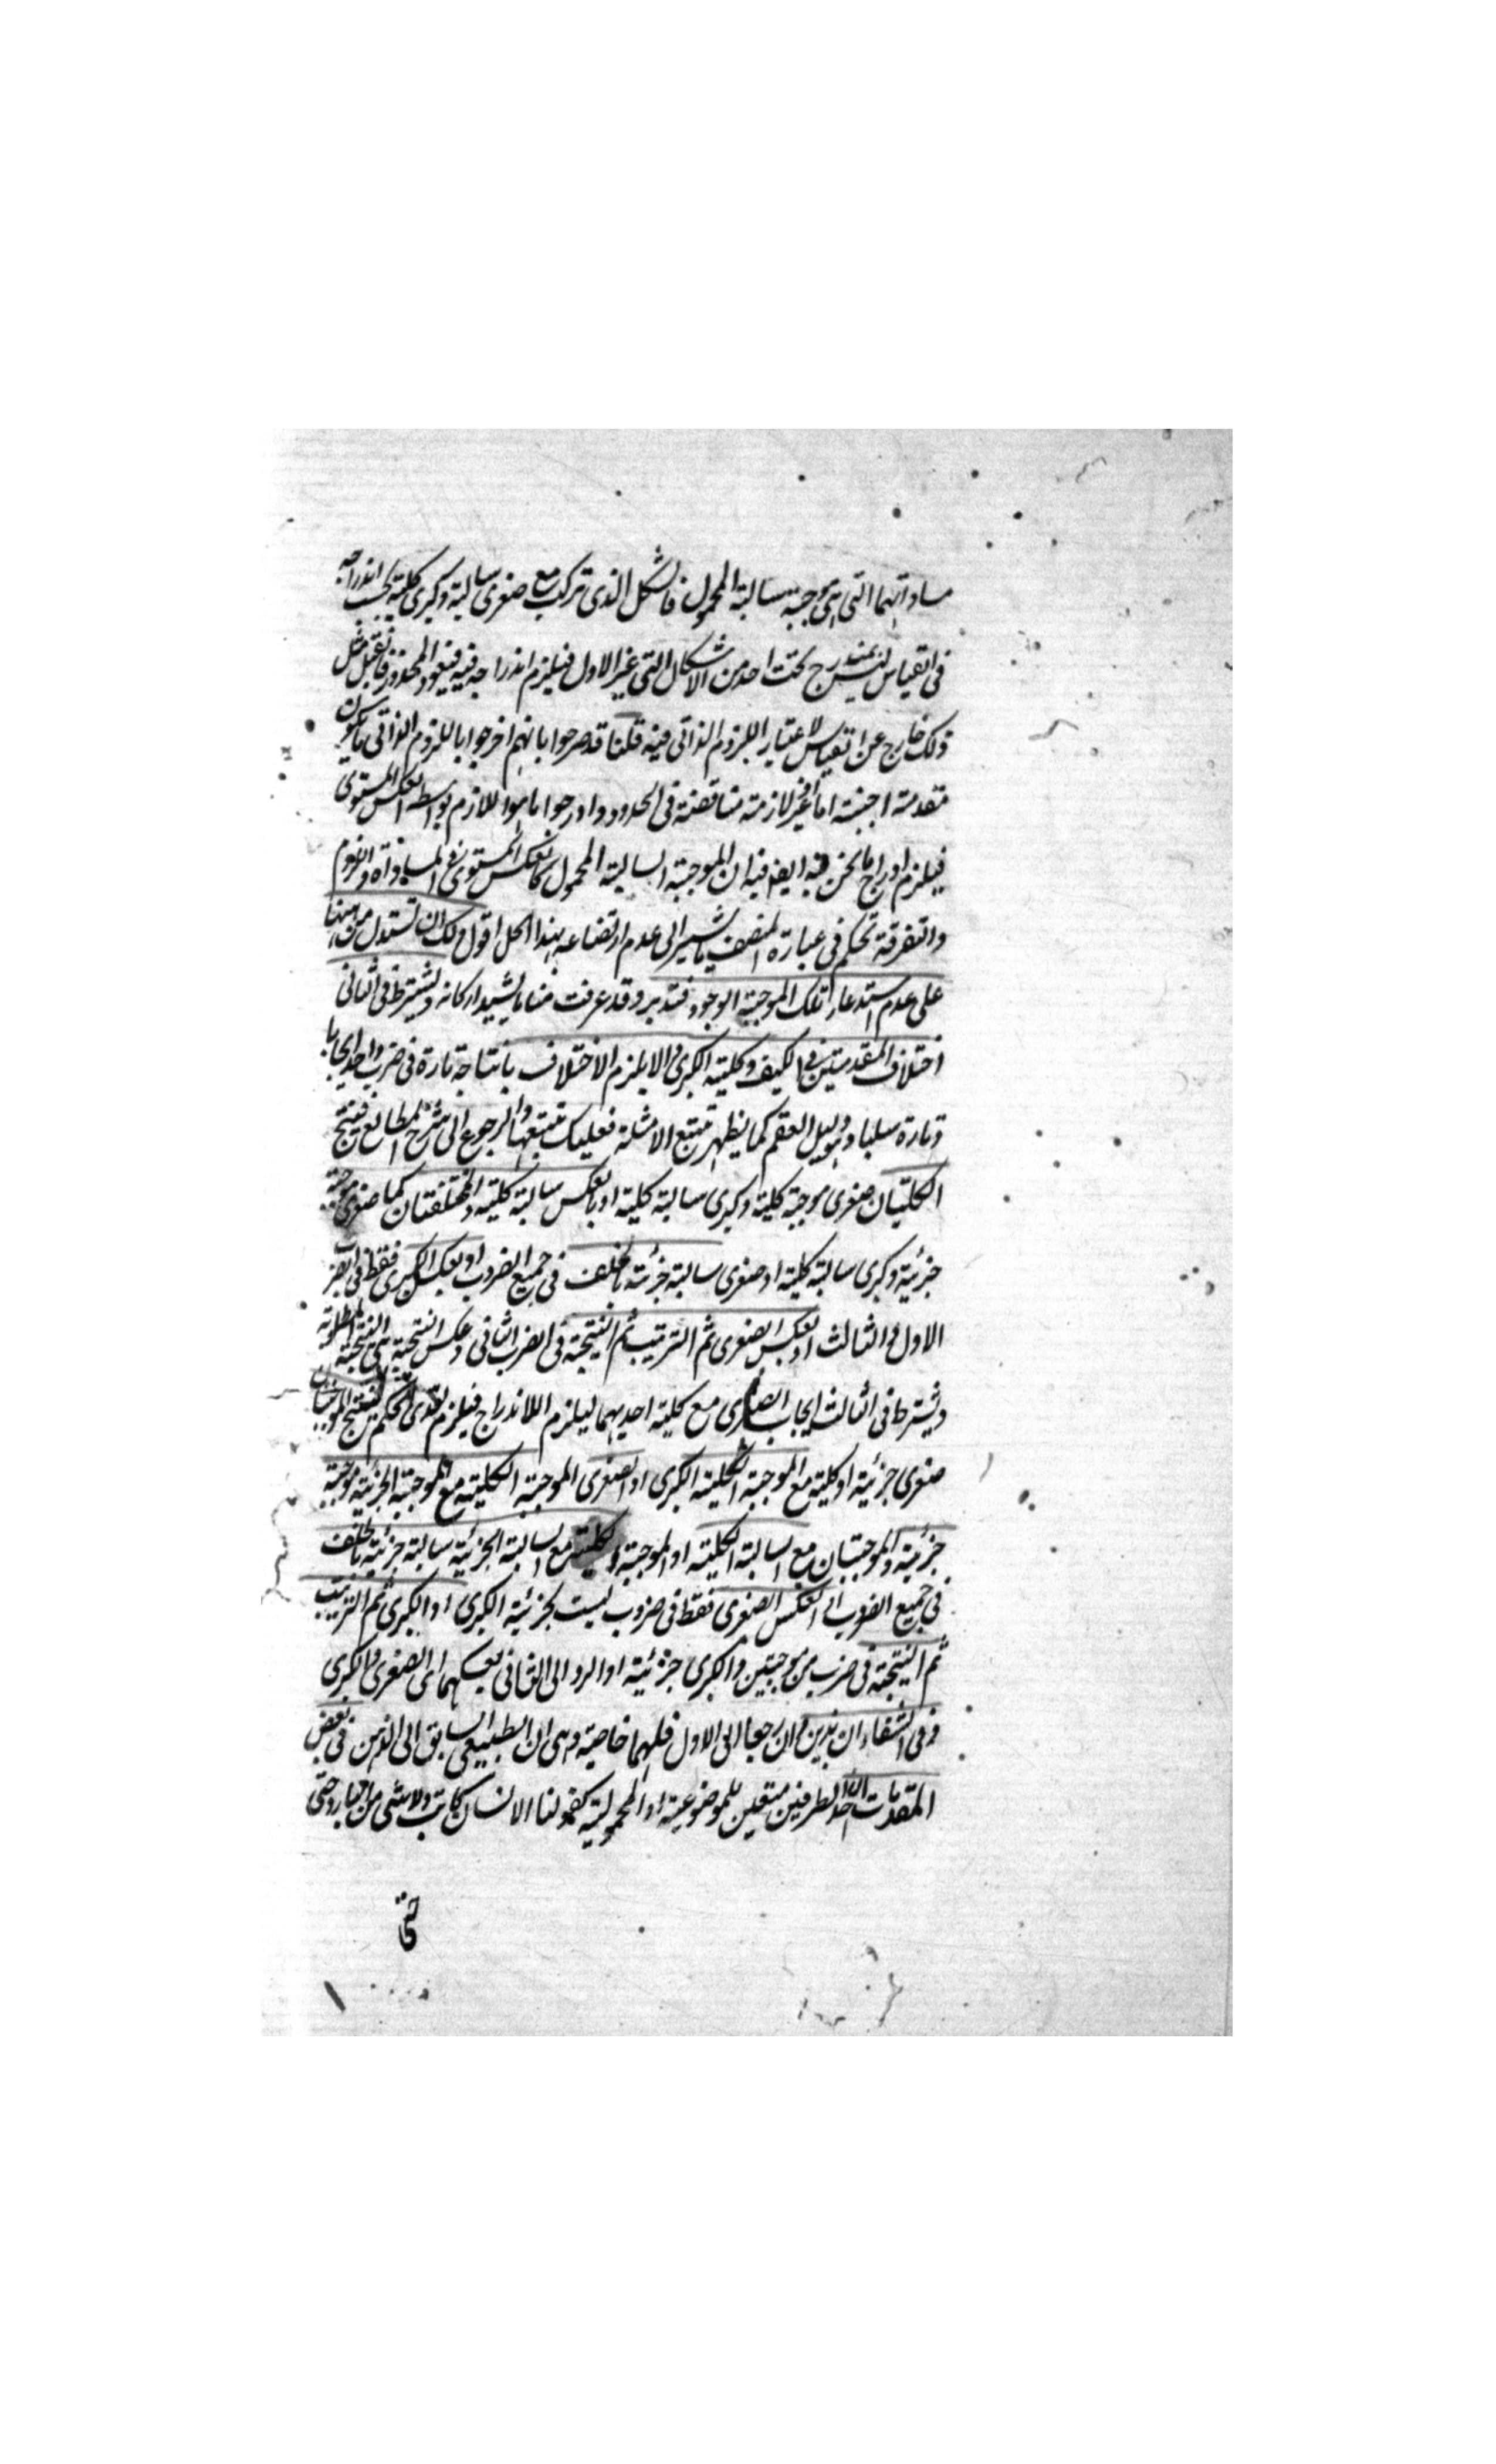 مساواتهما التى هى موجبة سالبة المحمول فالشكل الذى تركب مع صغرى سالبة وكبرى كلية يجب اندراجه
فى القياس لم يندرج تحت احد من الاشكال التى غير الاول فيلزم اندراجه فيه فيعود المحذور فان قيل مثل
ذلك خارج عن القياس لاعتبار اللزوم الذاتى فيه قلنا قد صرحوا بانهم اخرجوا باللزوم الذاتى ما يكون
مقدمة اجنبية اما غير لازمة مناقضة فى الحدود وادرجوا ما هو اللازم بواسطة العكس المستوى
فيلزم ادراج ما نحن فيه ايضا فيه لان الموجبة السالبة المحمول كالعكس المستوى فى المساواة واللزوم
والتفرقة تحكم فى عبارة المصنف ما يشير الى عدم ارتضائه بهذا الحل اقول ولك ان تستدل من ههنا
على عدم استدعاء تلك الموجبة الوجود فتدبر وقد عرفت منا ما يشيد اركانه ويشترط فى الثانى
اختلاف المقدمتين فى الكيف وكلية الكبرى والا يلزم الاختلاف بانتاجه تارة فى ضرب واحد ايجابا
وتارة سلبا وهو دليل العقم كما يظهر بتتبع الامثلة فعليك بتتبعها والرجوع الى شرح المطالع فينتج
الكليتان صغرى موجبة كلية وكبرى سالبة كلية او بالعكس سالبة كلية والمختلفتان كما صغرى موجبة
جزئية وكبرى سالبة كلية او صغرى سالبة جزئية بالخلف فى جميع الضروب او بعكس الكبرى فقط فى الضرب
الاول والثالث او بعكس الصغرى ثم الترتيب ثم النتيجة فى الضرب الثانى وعكس النتيجة هى النتيجة المطلوبة
ويشترط فى الثالث ايجاب الصغرى مع كلية احديهما ليلزم الاندراج فيلزم تعدى الحكم لينتج الموجبتان
صغرى جزئية او كلية مع الموجبة الكلية الكبرى او الصغرى الموجبة الكلية مع الموجبة الجزئية موجبة
جزئية والموجبتان مع السالبة الكلية او الموجبة الكلية مع السالبة الجزئية سالبة جزئية بالخلف
فى جميع الضروب او بعكس الصغرى فقط فى ضروب ليست بجزئية الكبرى او الكبرى ثم الترتيب
ثم النتيجة فى ضرب من موجبتين والكبرى جزئية او الرد الى الثانى بعكسهما اى الصغرى والكبرى
وفى الشفاء ان هذين وان رجعا الى الاول فلهما خاصية وهى ان الطبيعى السابق الى الذهن فى بعض
المقدمات ان احد الطرفين متعين للموضوعية او المحمولية كقولنا الانسان كاتب ولا شئ من النار
حتى